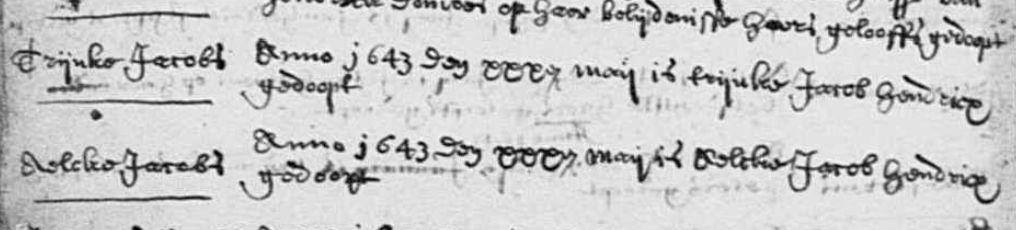 op haer belijdenisse haers gelooffs gedoopt
Trijnke Jacobs Anno 1643 den xxxj maij is trijnke Jacob Hendricx
gedoopt
Aelcke Jacobs Anno 1643 den xxxj maij is Aelcke Jacob Hendricx
gedoopt